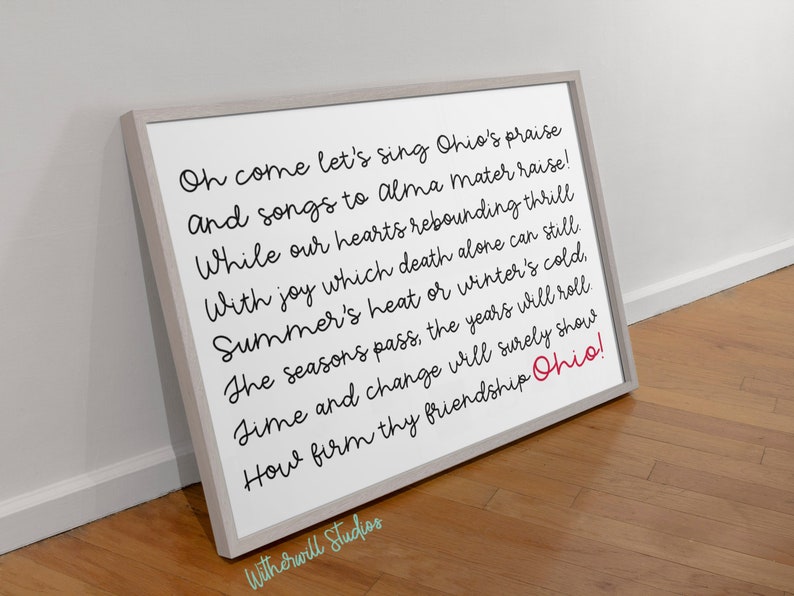 Oh come let's sing Ohio's praise
and songs to Alma Mater raise!
While our hearts rebounding thrill
With joy which death alone can still.
Summer's heat or winter's cold,
The seasons pass, the years will roll.
Time and change will surely show
How firm thy friendship Ohio!
Witherwill Studios